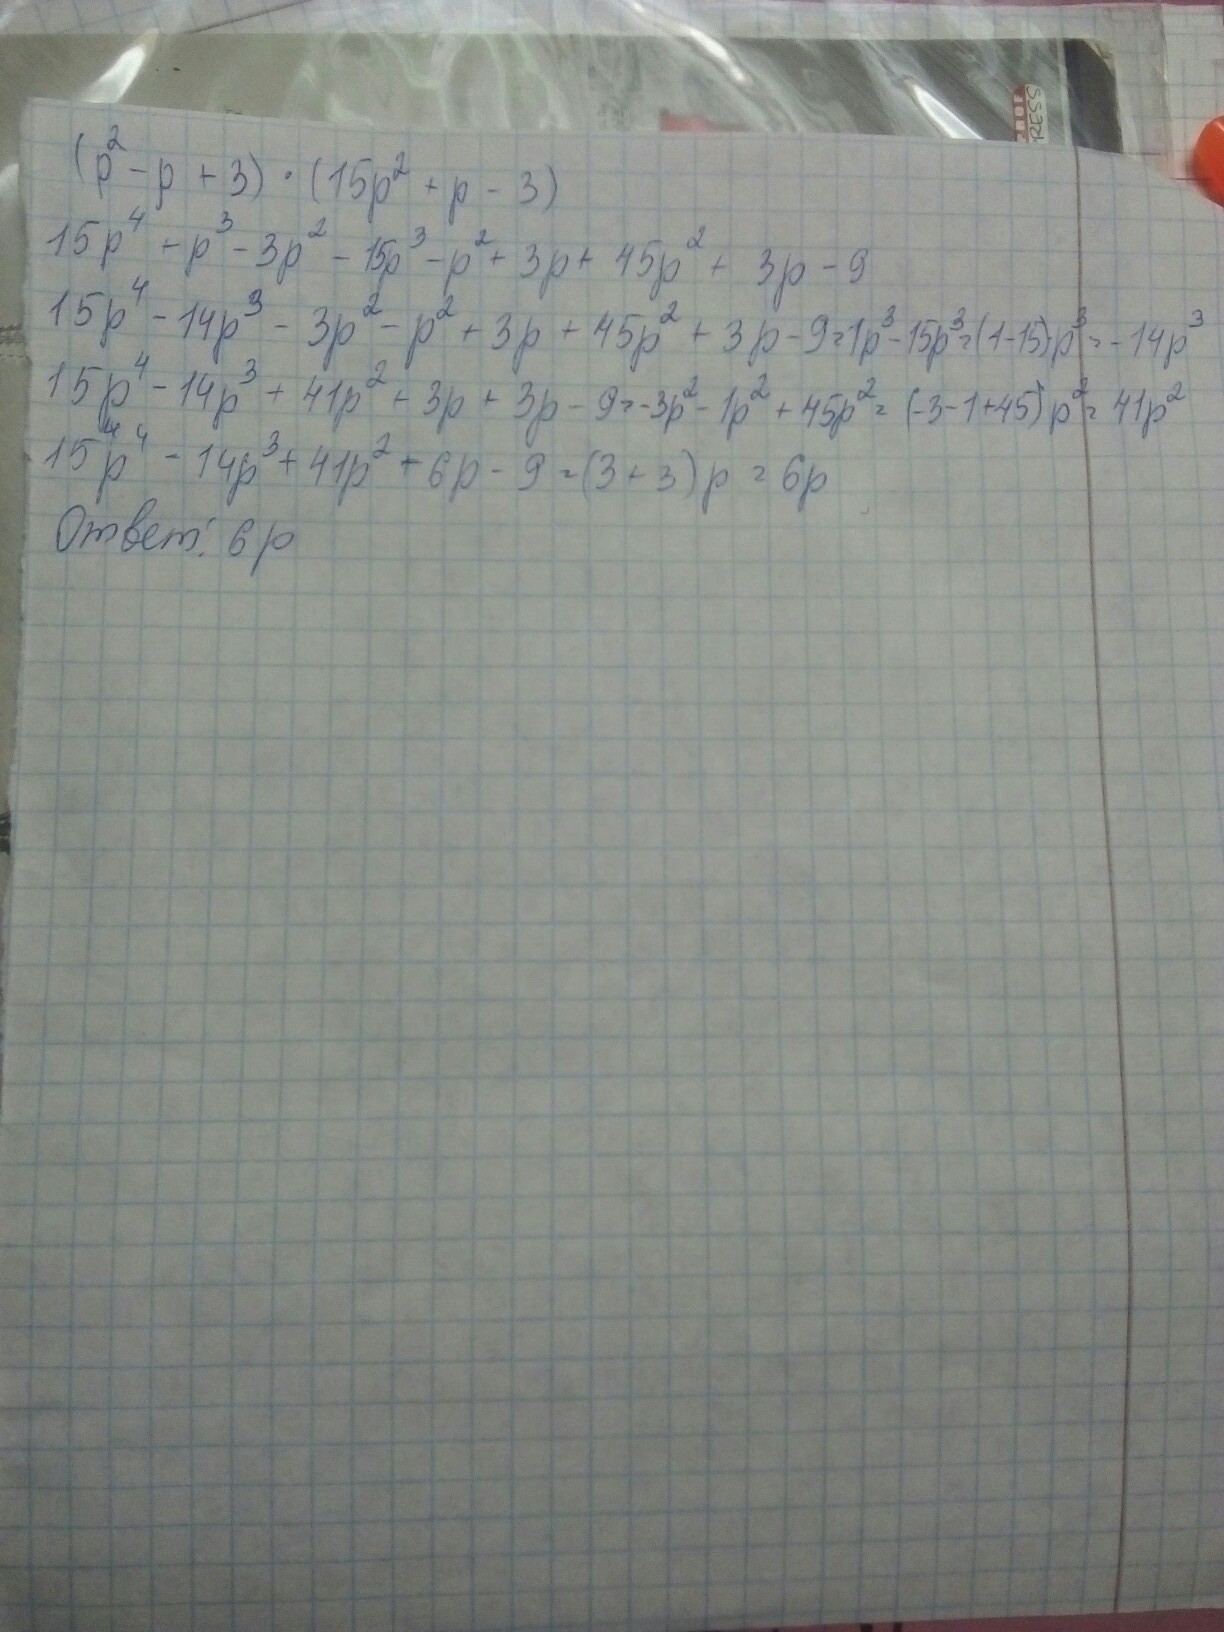 (p² - p + 3) · (15p² + p - 3)
15p⁴ + p³ - 3p² - 15p³ - p² + 3p + 45p² + 3p - 9
15p⁴ - 14p³ - 3p² - p² + 3p + 45p² + 3p - 9 = 1p³ - 15p³ = (1-15)p³ = -14p³
15p⁴ - 14p³ + 41p² + 3p + 3p - 9 = -3p² - 1p² + 45p² = (-3-1+45)p² = 41p²
15p⁴ - 14p³ + 41p² + 6p - 9 = (3+3)p = 6p
Ответ: 6p
RESS